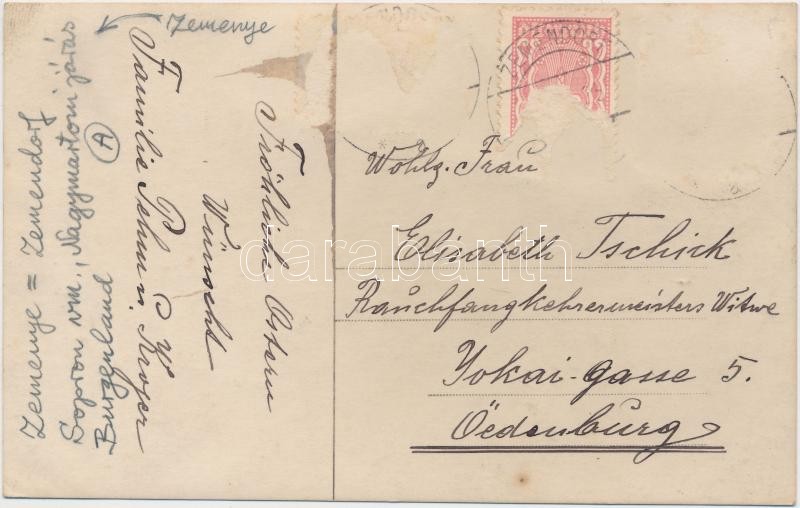 Zemenye
Zemenye = Zemendorf
Sopron vm., Nagymartoni járás
Burgenland
A
Fröhliche Ostern
Wünscht
Familie
Wohlg. Frau
Elisabeth Tschick
Rauchfangkehrermeisters Witwe
Jokai-gasse 5.
Öedenburg
darabanth